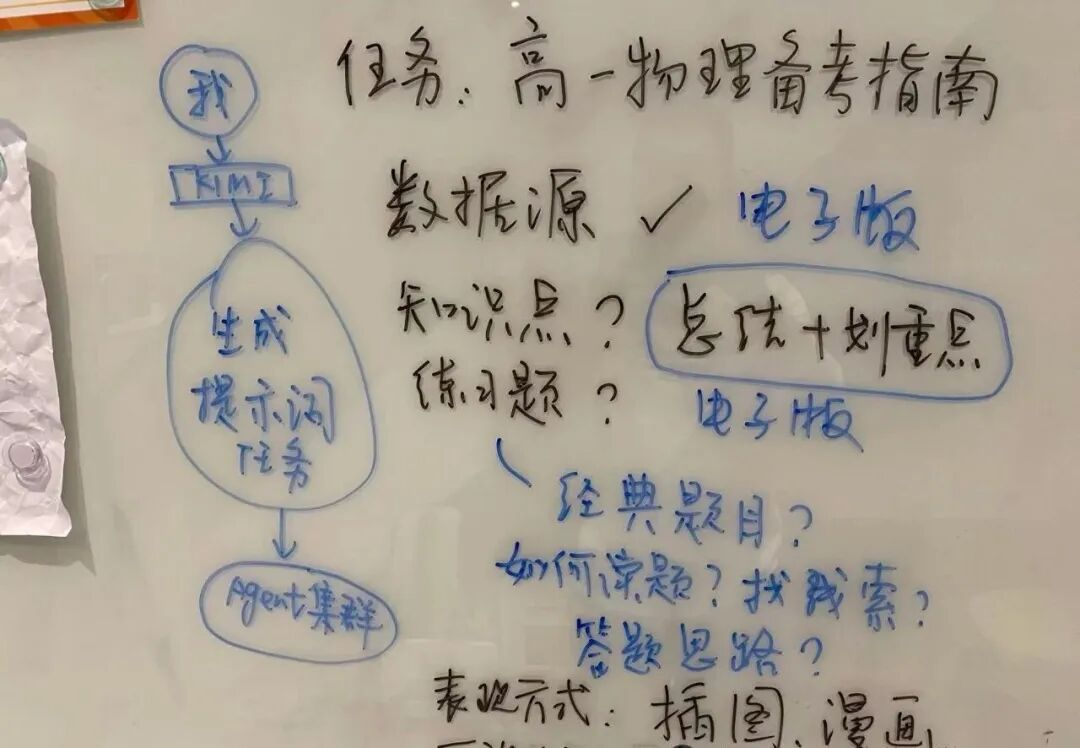 任务：高一物理备考指南
我
KIMI
数据源 ✓ 电子版
生成
提示词
任务
知识点？ 总结+划重点
练习题？ 电子版
经典题目？
如何读题？找线索？
答题思路？
Agent集群
表现方式：插图、漫画